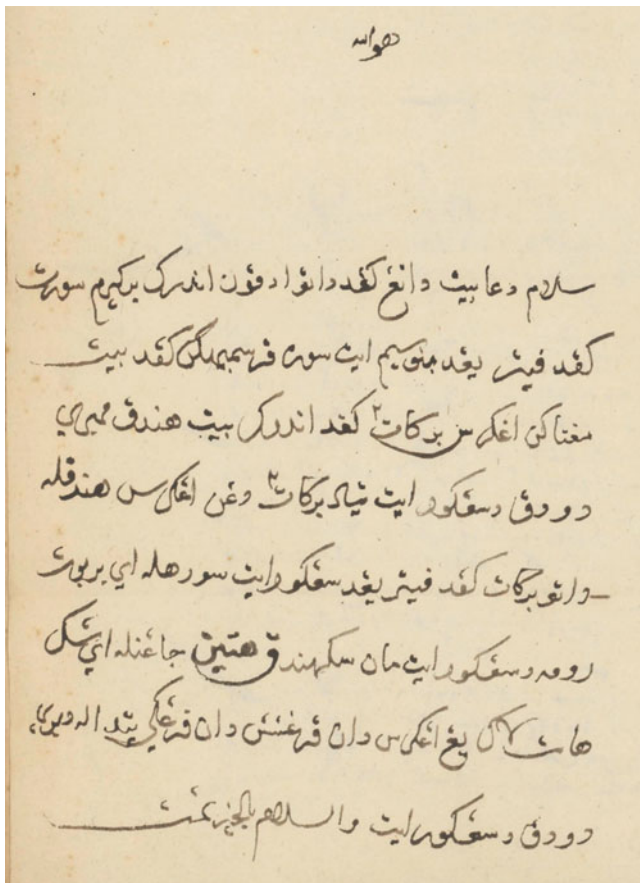 هوالله
سلام دعا بيت داتغ كفد داتو ادفون اندرك بركيرم سورت
كفد فيتر يغد ايت سورت كفد بيت
مغتاكن اغكرس بركات٢ كفد اندرك بيت هندق ممبري
دودق دسفكور ايت تياد بركات٢ دغن اغكرس هندقله
داتو بركات كفد فيتر يغد سفكور ايت سورهله اي بربوت
رومه دسفكور ايت مان سكهندق هتين جاغنله اي شك
هات كال يغ اغكرس دان دان
دودق دسفكور ايت والسلام بالخير تمت